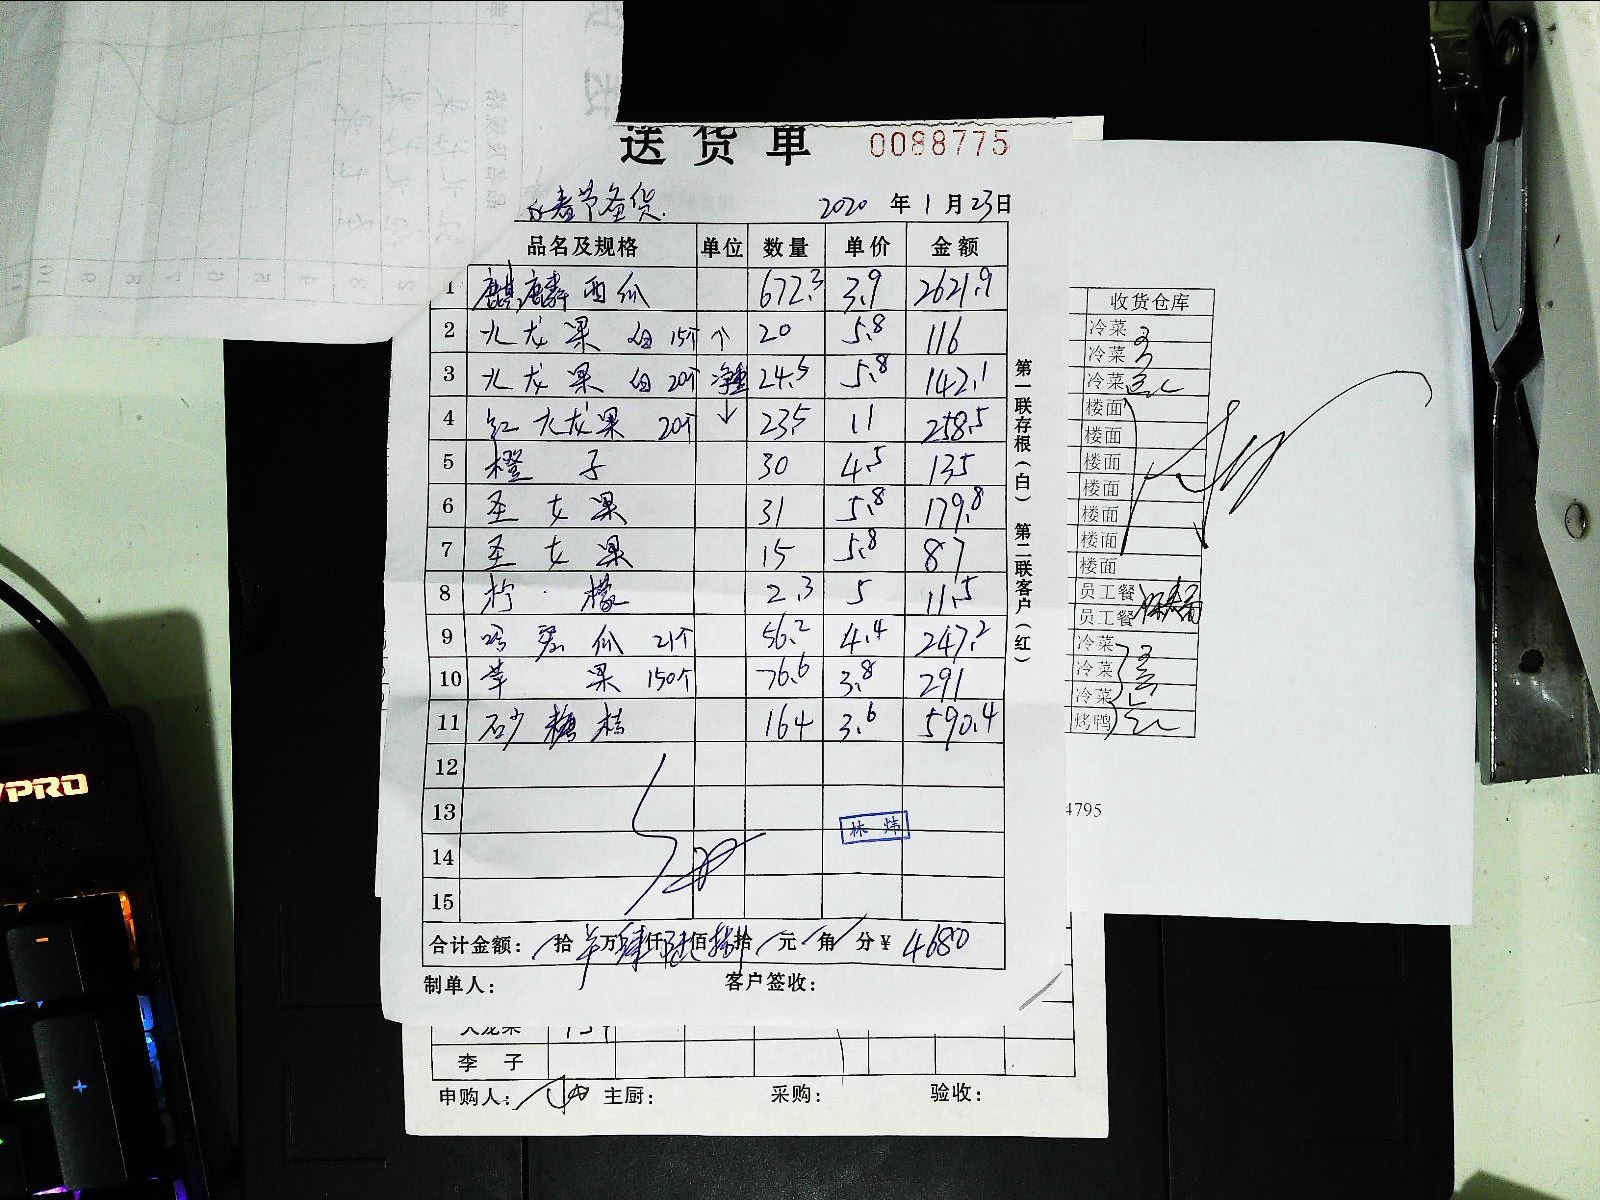 送货单 0088775
春节备货 2020 年 1 月 23 日
品名及规格 单位 数量 单价 金额
1 麒麟西瓜 672.3 3.9 2621.9
2 火龙果 白 15个 ↑ 20 5.8 116
3 火龙果 白 20个 净重 24.5 5.8 142.1
4 红火龙果 20个 ↓ 23.5 11 258.5
5 橙子 30 4.5 135
6 圣女果 31 5.8 179.8
7 圣女果 15 5.8 87
8 柠檬 2.3 5 11.5
9 哈密瓜 21个 56.2 4.4 247.2
10 苹果 150个 76.6 3.8 291
11 砂糖桔 164 3.6 590.4
12
13
14
15
林炜
合计金额: 拾 万肆仟陆佰捌拾 元 角 分 ¥ 4680
制单人: 客户签收:
第一联存根(白) 第二联客户(红)
火龙果
李子
申购人: 主厨: 采购: 验收:
收货仓库
冷菜
冷菜
冷菜
楼面
楼面
楼面
楼面
楼面
楼面
楼面
员工餐
员工餐
冷菜
冷菜
冷菜
烤鸭
4795
PRO